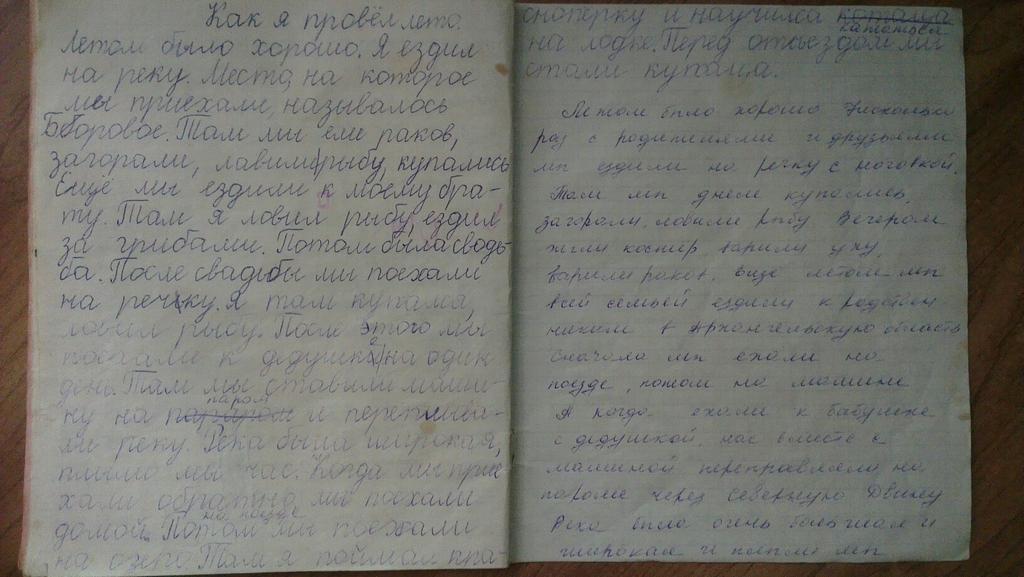 Как я провёл лето.
Летом было хорошо. Я ездил
на реку. Место, на которое
мы приехали, называлось
Боровое. Там ми ели раков,
загорали, лавили рыбу, купались
Ещё мы ездили к моему бра-
ту. Там я ловил рыбу, ездил
за грибами. Потом была свадь-
ба. После свадьбы ми поехали
на речку. Я там купался,
ловил рыбу. После этого мы
поехали к дедушке на один
день. Там мы ставили маши-
паром
ну на и переплыва-
ли реку. Река была широкая,
плыли мы час. Когда ми прие-
хали обратно, ми поехали
на поезде
домой. Потом мы поехали
на озеро. Там я поймал кра-
снопёрку и научился
кататься
на лодке. Перед отъездом ми
стали купаца.
Летом было хорошо Несколько
раз с родителями и друзьями
мы ездили на речку с ночовкой.
Там мы днём купались,
загорали, ловили рыбу Вечером
жгли костёр, варили уху,
варили раков. Ещё летом мы
всей семьёй ездили к родствен
никам в Архангельскую область
Сначала мы ехали на
поезде, потом на машине
А когда ехали к бабушке
с дедушкой, нас вместе с
машиной переправляли на
пароме через Северную Двину
Река была очень большая и
широкая и плыли мы